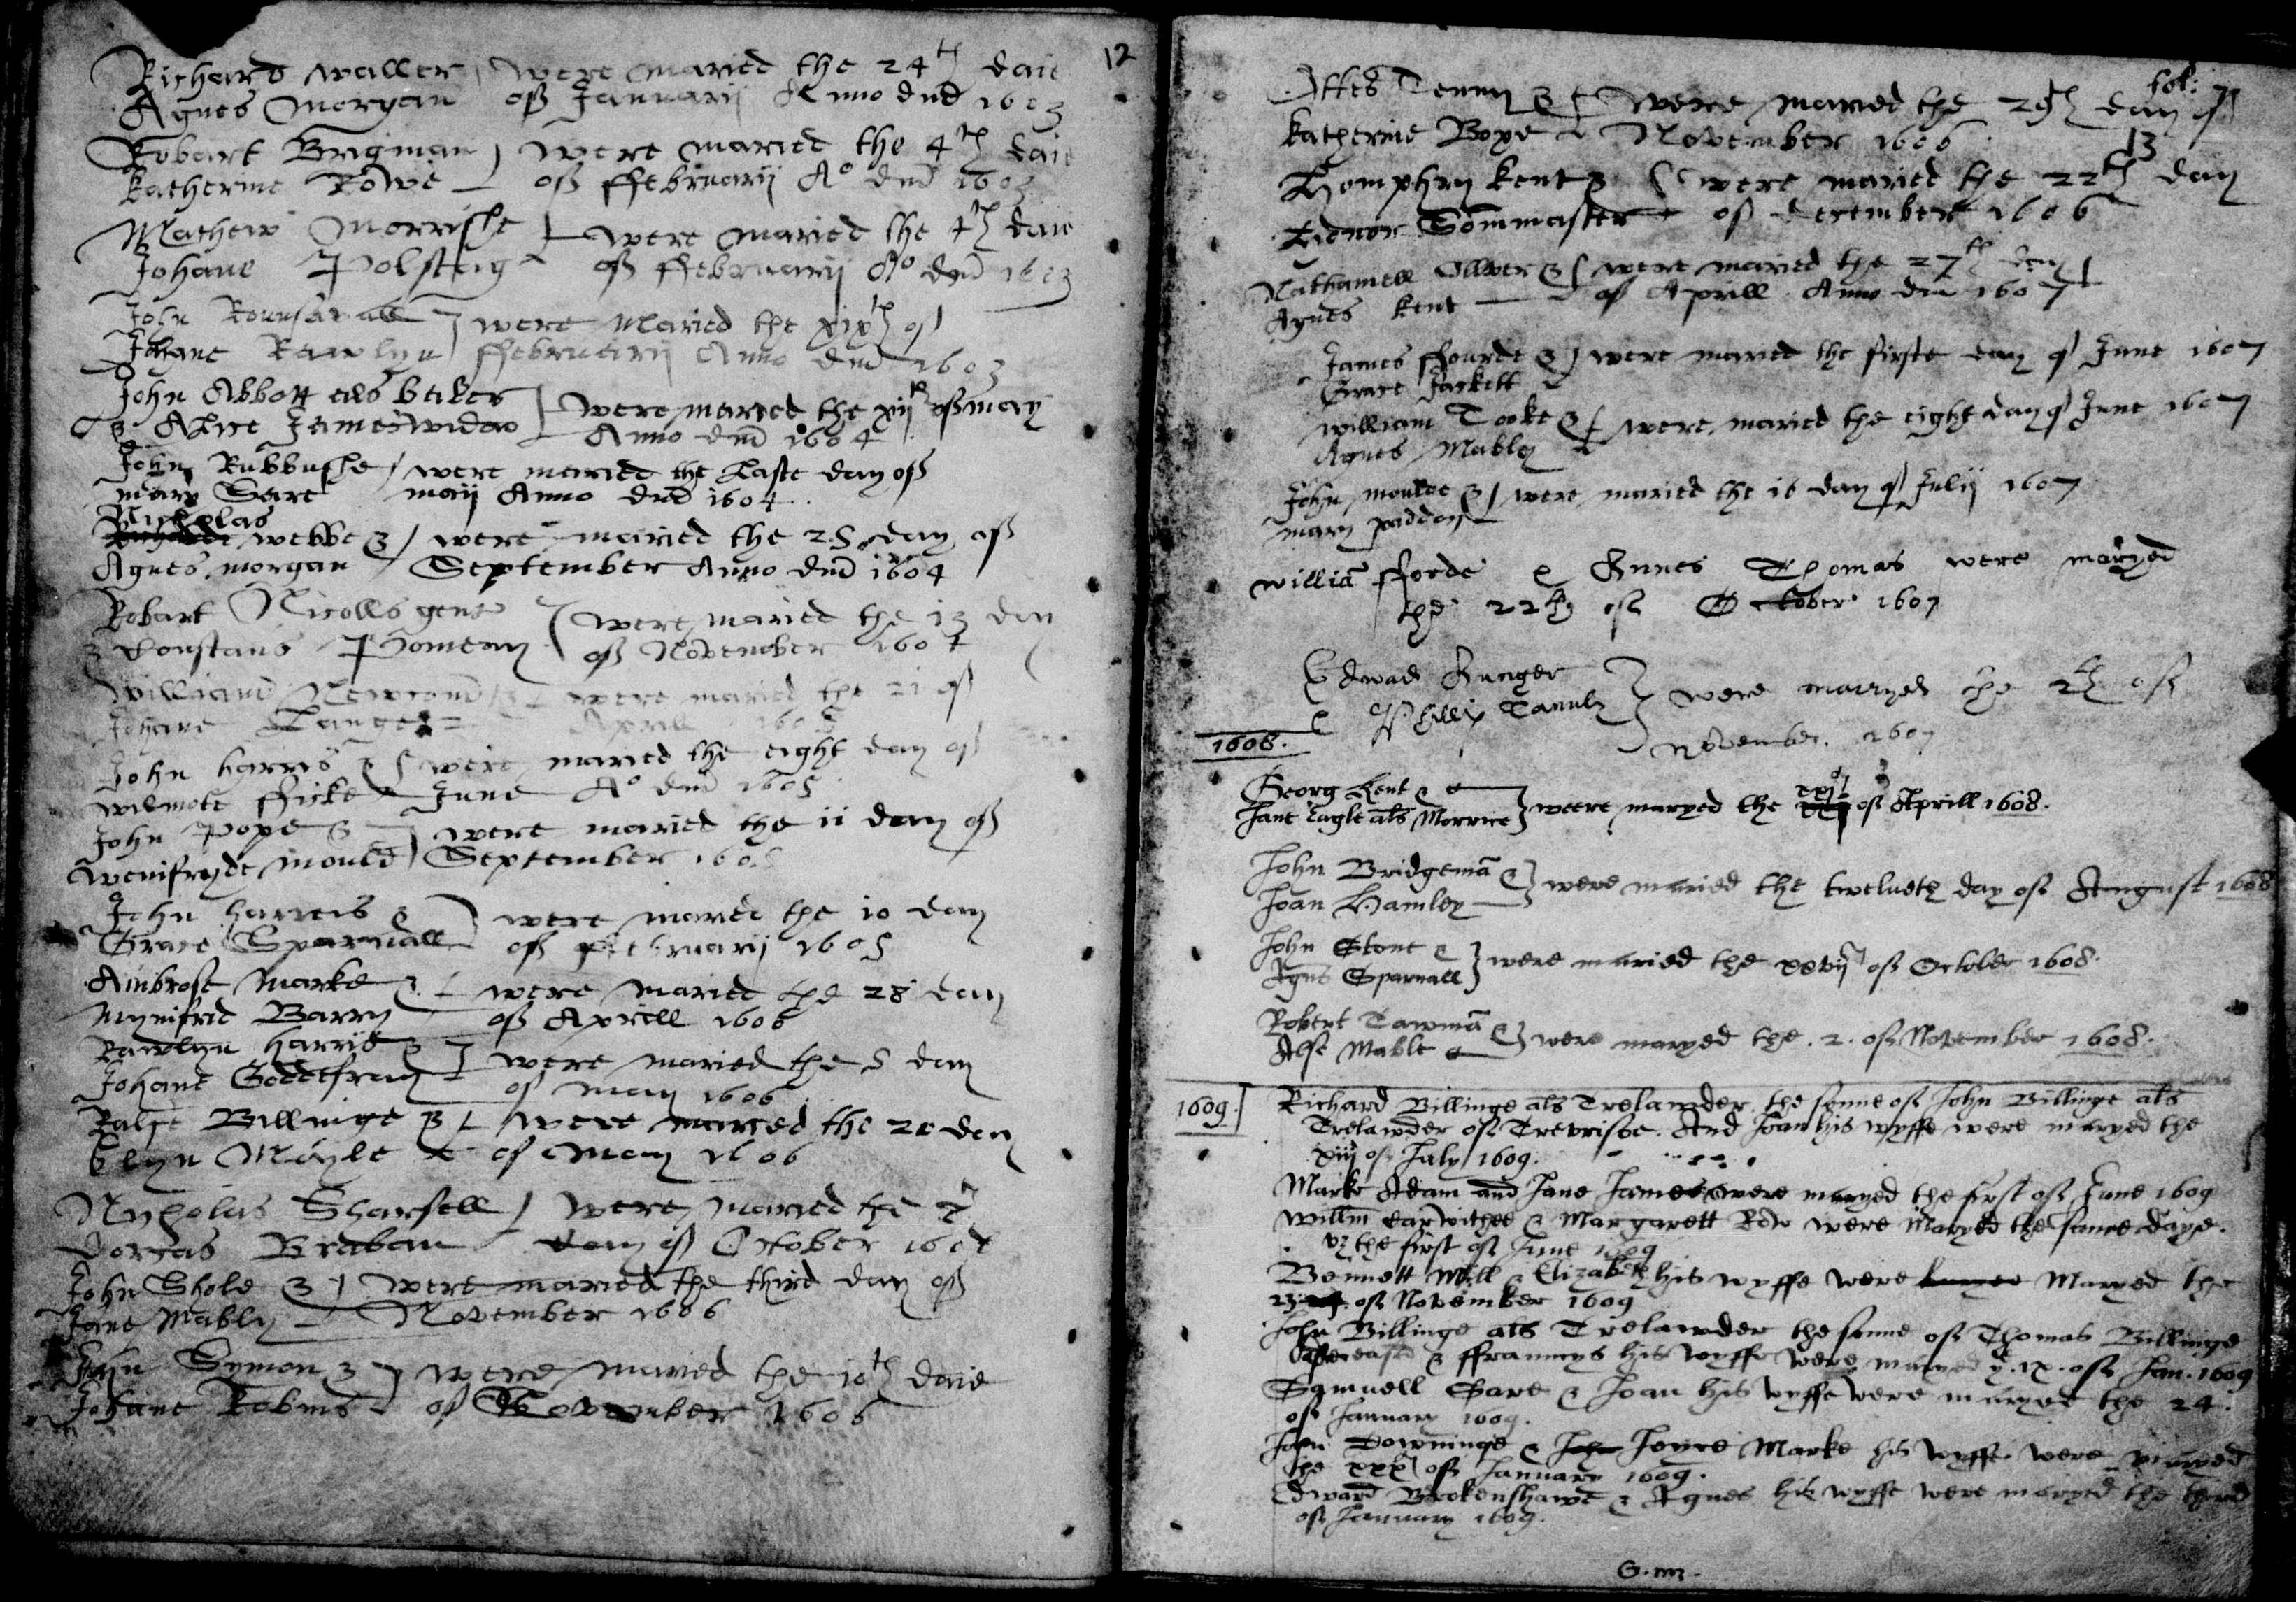 12
Richard Waller were maried the 24th daie
Agnes Morgan off Januarij Anno dni 1603
Robart Brigman were maried the 4th daie
Katherine Rowe off ffebruarij Ao dni 1603
Mathew Morrishe were maried the 4th daie
Johane Polstag off ffebruarij Ao dni 1603
John were Maried the xixth of
Johane Rawlyn ffebruarij Anno dni 1603
John Abbott als baker were maried the xijth off may
& Alice James widow Anno dni 1604
John Rubbushe were maried the Laste day off
mary Sare maij Anno dni 1604
Nicholas
Richarde webbe & were maried the 25 day off
Agnes morgan September Anno dni 1604
Robart Nicolls gent were maried the 13 day
& Constans Pomeay off November 1604
William Newcomb & were maried the 21 of
Johane Aprill 1605
John harris & were maried the eight day off
wilmote fficke June Ao dni 1605
John Pope & were maried the 11 day off
Wenifryde mould September 1605
John harreis & were maried the 10 day
Grace Sparnall off ffebruarij 1605
Ambrose Marke & were maried the 28 day
Wynifrid Barry off Aprill 1606
Rawlyn harris & were maried the 5 day
Johane Goddefray of may 1606
Ralfe Billinge & were maried the 20 day
Elyn Mayle of may 1606
Nycholas Sharsell were maried the
Dorcas Braban day of October 1606
John Shole & were maried the third day off
Jane Mably November 1606
John Symon & were maried the 10th daie
Johane Robins of November 1606
fol: 7
Ottes Tenny & were maried the 29th day of
Katherine Bope November 1606
13
Homphry Kent & were maried the 22th day
Sommaster of december 1606
Nathaniell Olliver & were maried the 27th day
Agnes Kent of Aprill Anno dni 1607
James ffourde & were maried the firste day of June 1607
Grace Jackett
William Tooke & were maried the eight day of June 1607
Agnes Mably
John moulde & were maried the 16 day of Julij 1607
mary paddon
willia fforde & Annes Thomas were maryed
the 22th off October 1607
Edward were marryed the off
& Phillip November 1607
1608.
Georg Kent & xxj
Jane Cagle als Morrice weere maryed the off Aprill 1608.
John Bridgema & were maried the twelueth day off August 1608
Joan Hamley
John Stone & were maried the xxvij off October 1608.
Agnes Sparnall
Robert Tawma & were maryed the .2. off November 1608.
Alse Mable
1609.
Richard Billinge als Trelawder the sonne off John Billinge als
Trelawder off Trevrisoe. And Joan his wyffe were maryed the
xiij of July 1609.
Marke Adam and Jane James were maryed the first off June 1609
Willm Carwithee & Margarett Row were Maryed the same daye.
vz the first off June 1609
Bennett Mill & Elizabeth his wyffe were Maryed the
23 off November 1609
John Billinge als Trelawder the sonne off Thomas Billinge
deceased & ffrauncys his wyffe were maryed ye .ix. off Jan. 1609
Samuell Sare & Joan his wyffe were maryed the 24.
off January 1609.
John Downinge & Joyce Marke his wyffe were maryed
the xxx off January 1609.
Edward Brokenshawe & Agnes his wyffe were maryed the therd
off January 1609.